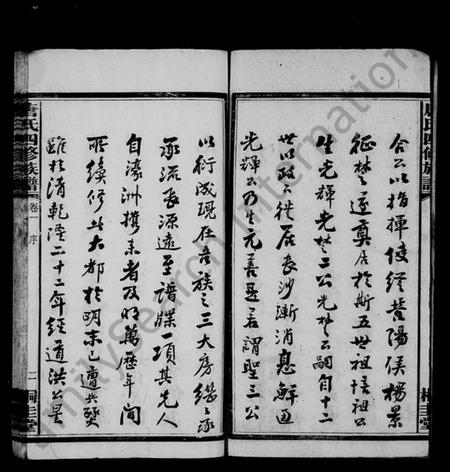 合公以指揮使經營陽侯楊景
征楚遂奠居於斯五世祖培祖公
生光輝光楚二公光楚公嗣自十二
世以政公徙居長沙漸消息鮮通
光輝公乃生元善是君謂聖三公
以衍成現在吾族之三大房繼々承
承流長源遠至譜牒一項其先人
自濠洲携來者及明萬歷年間
所續修此大都於明末已遭兵燹
雖於清乾隆二十二年經道洪公星
唐氏四修族譜
卷一 序
二
桐圭堂
FamilySearch International